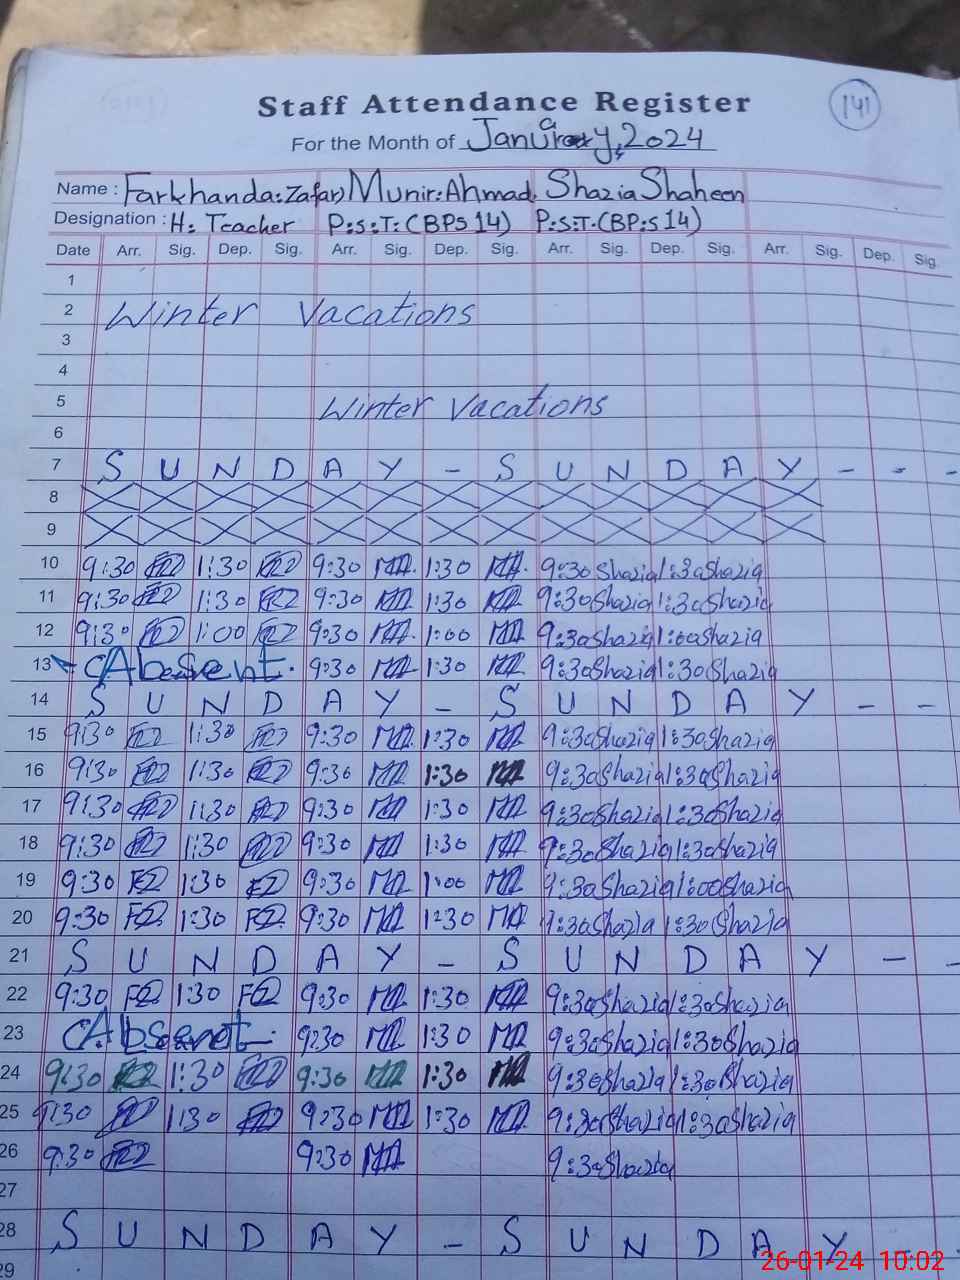 141
Staff Attendance Register
For the Month of January, 2024
Name : Farkhanda:Zafar) Munir:Ahmad. Shazia Shaheen
Designation : H: Teacher P:S:T:(BPS 14) P:S:T.(BP:S 14)
Date Arr. Sig. Dep. Sig. Arr. Sig. Dep. Sig. Arr. Sig. Dep. Sig. Arr. Sig. Dep. Sig.
1
2 Winter Vacations
3
4
5 Winter Vacations
6
7 S U N D A Y - S U N D A Y - - -
8
9
10 9:30 1:30 9:30 1:30 9:30 Shazia 1:30 Shazia
11 9:30 1:30 9:30 1:30 9:30 Shazia 1:30 Shazia
12 9:30 1:00 9:30 1:00 9:30 Shazia 1:00 Shazia
13 Absent. 9:30 1:30 9:30 Shazia 1:30 Shazia
14 S U N D A Y - S U N D A Y - -
15 9:30 1:30 9:30 1:30 9:30 Shazia 1:30 Shazia
16 9:30 1:30 9:30 1:30 9:30 Shazia 1:30 Shazia
17 9:30 1:30 9:30 1:30 9:30 Shazia 1:30 Shazia
18 9:30 1:30 9:30 1:30 9:30 Shazia 1:30 Shazia
19 9:30 FZ 1:30 FZ 9:30 1:00 9:30 Shazia 1:00 Shazia
20 9:30 FZ 1:30 FZ 9:30 1:30 9:30 Shazia 1:30 Shazia
21 S U N D A Y - S U N D A Y - -
22 9:30 FZ 1:30 FZ 9:30 1:30 9:30 Shazia 1:30 Shazia
23 Absent. 9:30 1:30 9:30 Shazia 1:30 Shazia
24 9:30 1:30 9:30 1:30 9:30 Shazia 1:30 Shazia
25 9:30 1:30 9:30 1:30 9:30 Shazia 1:30 Shazia
26 9:30 9:30 9:30 Shazia
27
28 S U N D A Y - S U N D A Y
29
26-01-24 10:02